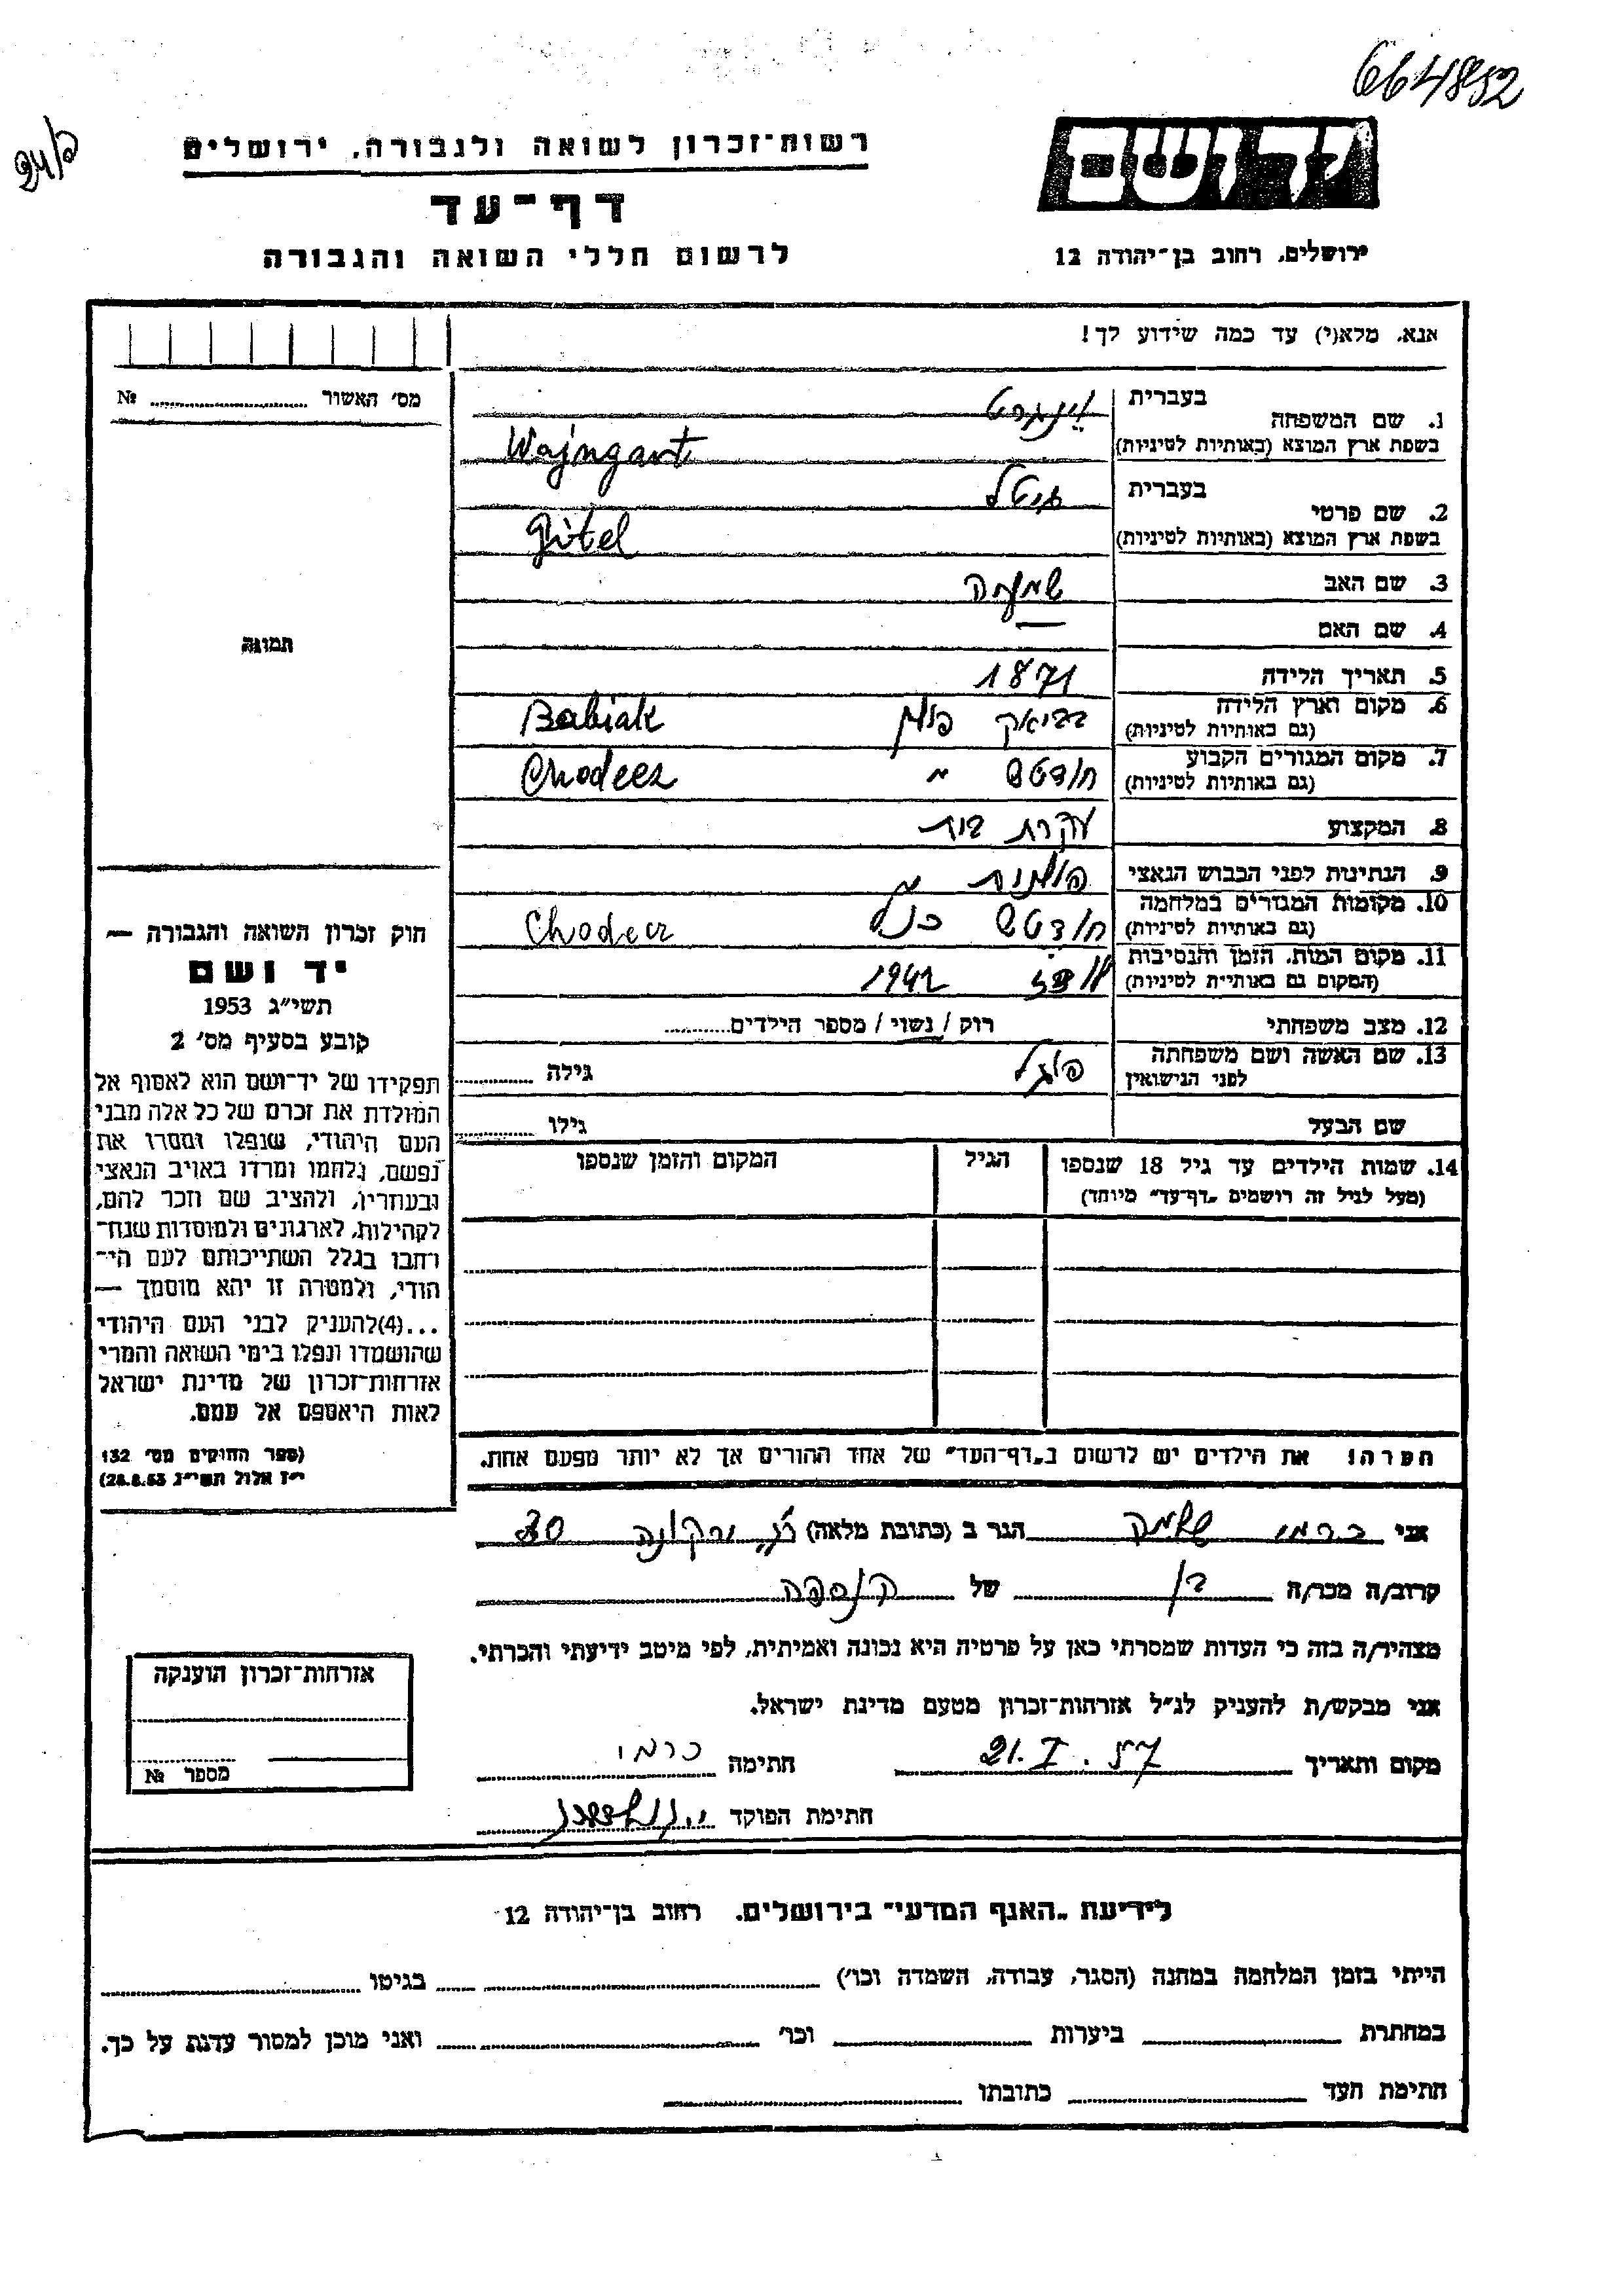 664852
24/פ
יד ושם
ירושלים, רחוב בן־יהודה 12
רשות־זכרון לשואה ולגבורה, ירושלים
דף־עד
לרשום חללי השואה והגבורה
אנא, מלא(י) עד כמה שידוע לך!
מס׳ האשור № 
1. שם המשפחה
בעברית וינגרט
בשפת ארץ המוצא (באותיות לטיניות) Wajngart
2. שם פרטי
בעברית גיטל
בשפת ארץ המוצא (באותיות לטיניות) Gitel
3. שם האב
4. שם האם —
5. תאריך הלידה 1871
6. מקום וארץ הלידה (גם באותיות לטיניות) בביאק פולין Babiak
7. מקום המגורים הקבוע (גם באותיות לטיניות) חודטש " Chodecz
8. המקצוע עקרת בית
9. הנתינות לפני הכבוש הנאצי פולנית
10. מקומות המגורים במלחמה (גם באותיות לטיניות) חודטש כנ"ל Chodecz
11. מקום המות, הזמן והנסיבות (המקום גם באותיות לטיניות) לודז 1942
12. מצב משפחתי רוק / נשוי / מספר הילדים
13. שם האשה ושם משפחתה לפני הנישואין פוגל גילה
שם הבעל גילו
14. שמות הילדים עד גיל 18 שנספו (מעל לגיל זה רושמים „דף־עד״ מיוחד)
הגיל
המקום והזמן שנספו
הערה! את הילדים יש לרשום ב„דף־העד״ של אחד ההורים אך לא יותר מפעם אחת.
תמונה
חוק זכרון השואה והגבורה —
יד ושם
תשי״ג 1953
קובע בסעיף מס׳ 2
תפקידו של יד־ושם הוא לאסוף אל
המולדת את זכרם של כל אלה מבני
העם היהודי, שנפלו ומסרו את
נפשם, נלחמו ומרדו באויב הנאצי
ובעוזריו, ולהציב שם וזכר להם,
לקהילות, לארגונים ולמוסדות שנח־
רבו בגלל השתייכותם לעם הי־
הודי, ולמטרה זו יהא מוסמך —
...(4)להעניק לבני העם היהודי
שהושמדו ונפלו בימי השואה והמרי
אזרחות־זכרון של מדינת ישראל
לאות היאספם אל עמם.
(ספר החוקים מס׳ 132
י״ז אלול תשי״ג 28.8.53)
אני כרמי שלמה הגר ב (כתובת מלאה) 30
קרוב/ה מכר/ה בן של הנספה
מצהיר/ה בזה כי העדות שמסרתי כאן על פרטיה היא נכונה ואמיתית, לפי מיטב ידיעתי והכרתי.
אני מבקש/ת להעניק לנ״ל אזרחות־זכרון מטעם מדינת ישראל.
מקום ותאריך 21.I.57 חתימה כרמי
חתימת הפוקד
אזרחות־זכרון הוענקה
מספר №
לידיעת „האגף המדעי״ בירושלים, רחוב בן־יהודה 12
הייתי בזמן המלחמה במחנה (הסגר, עבודה, השמדה וכו׳) בגיטו
במחתרת ביערות וכו׳ ואני מוכן למסור עדות על כך.
חתימת העד כתובתו